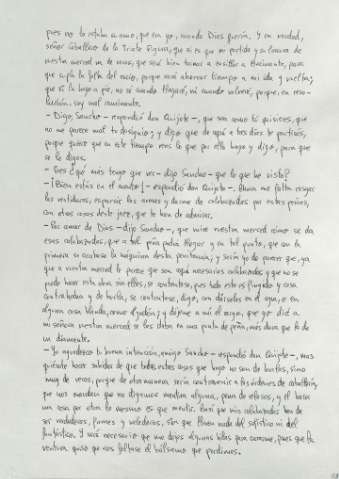 pues no le estaba a como, que era yo, cuando Dios quería. Y en verdad,
señor Caballero de la Triste Figura, que si es que mi partida y su locura de
vuestra merced van de veras, que será bien tornar a ensillar a Rocinante, para
que supla la falta del rucio, porque será ahorrar tiempo a mi ida y vuelta;
que si la hago a pie, no sé cuándo llegaré, ni cuándo volveré, porque, en reso-
lución, soy mal caminante.
- Digo, Sancho - respondió don Quijote -, que sea como tú quisieres, que
no me parece mal tu designio; y digo que de aquí a tres días te partirás,
porque quiero que en este tiempo veas lo que por ella hago y digo, para que
se lo digas.
- Pues ¿qué más tengo que ver - dijo Sancho - que lo que he visto?
- ¡Bien estás en el cuento! - respondió don Quijote -. Ahora me falta rasgar
las vestiduras, esparcir las armas y darme de calabazadas por estas peñas,
con otras cosas deste jaez, que te han de admirar.
- Por amor de Dios - dijo Sancho -, que mire vuestra merced cómo se da
esas calabazadas, que a tal peña podrá llegar y en tal punto, que con la
primera se acabase la máquina desta penitencia; y sería yo de parecer que, ya
que a vuestra merced le parece que son aquí necesarias calabazadas y que no se
puede hacer esta obra sin ellas, se contentase, pues todo esto es fingido y cosa
contrahecha y de burla, se contentase, digo, con dárselas en el agua, o en
alguna cosa blanda, como algodón; y déjeme a mí el cargo, que yo diré a
mi señora que vuestra merced se las daba en una punta de peña, más dura que la de
un diamante.
- Yo agradezco tu buena intención, amigo Sancho - respondió don Quijote -, mas
quiérote hacer sabidor de que todas estas cosas que hago no son de burlas, sino
muy de veras, porque de otra manera sería contravenir a las órdenes de caballería,
que nos mandan que no digamos mentira alguna, pena de relasos, y el hacer
una cosa por otra lo mesmo es que mentir. Así que mis calabazadas han de
ser verdaderas, firmes y valederas, sin que lleven nada del sofístico ni del
fantástico. Y será necesario que me dejes algunas hilas para curarme, pues que la
ventura quiso que nos faltase el bálsamo que perdimos.